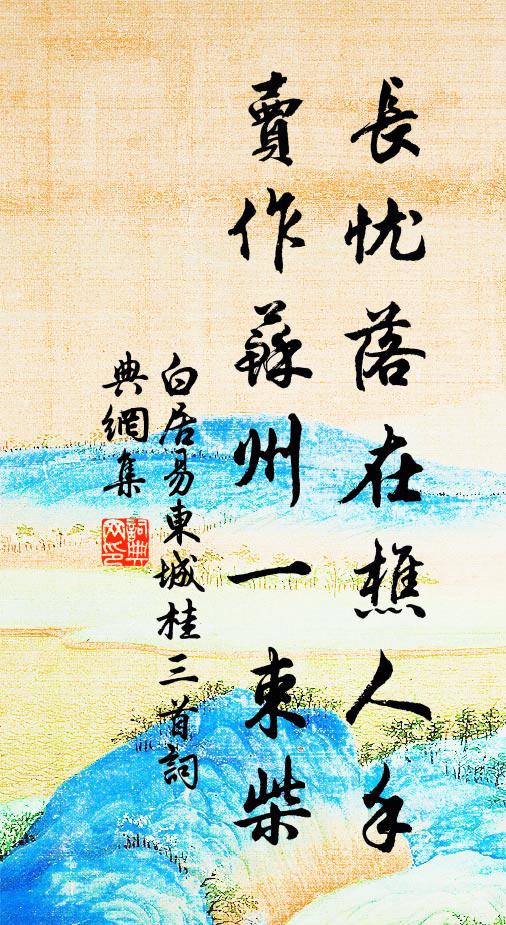 長忧落在樵人手
賣作蘇州一束柴
白居易東城桂三首詞
典網集
詞典
网印